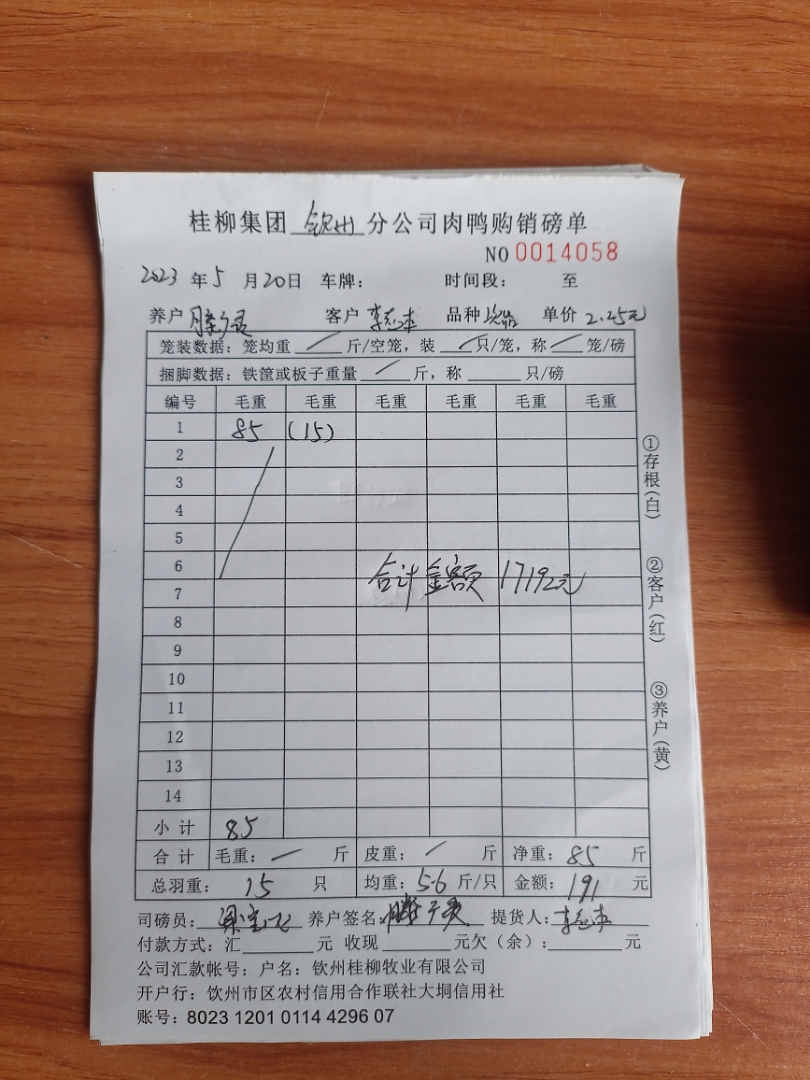 桂柳集团 钦州 分公司肉鸭购销磅单
NO 0014058
2023 年 5 月 20 日 车牌： 时间段： 至
养户 客户 品种 单价 2.25元
笼装数据：笼均重 斤/空笼，装 只/笼，称 笼/磅
捆脚数据：铁筐或板子重量 斤，称 只/磅
编号 毛重 毛重 毛重 毛重 毛重 毛重
1 85 (15)
2
3
4
5
6
7
合计金额 1719元
8
9
10
11
12
13
14
小计 85
合计 毛重： 斤 皮重： 斤 净重：85 斤
总羽重：15 只 均重：5.6 斤/只 金额：191 元
司磅员： 养户签名： 提货人：
付款方式：汇 元 收现 元欠（余）： 元
公司汇款帐号：户名：钦州桂柳牧业有限公司
开户行：钦州市区农村信用合作联社大垌信用社
账号：8023 1201 0114 4296 07
①存根（白）
②客户（红）
③养户（黄）